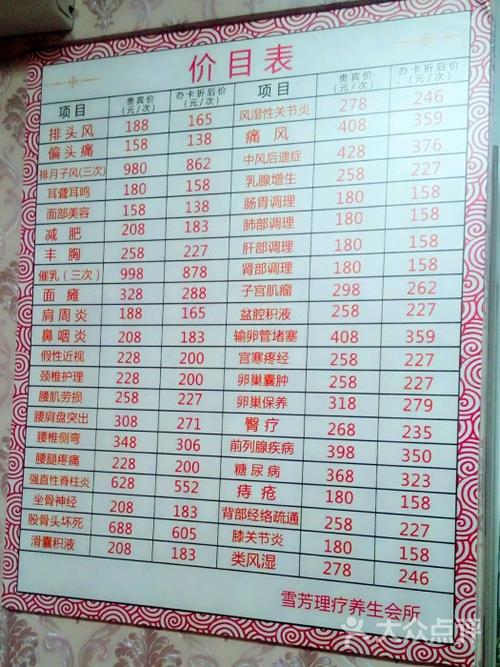 价目表
项目 贵宾价(元/次) 办卡折后价(元/次)
排头风 188 165
偏头痛 158 138
排月子风(三次) 980 862
耳聋耳鸣 180 158
面部美容 158 138
减肥 208 183
丰胸 258 227
催乳(三次) 998 878
面瘫 328 288
肩周炎 188 165
鼻咽炎 208 183
假性近视 228 200
颈椎护理 228 200
腰肌劳损 258 227
腰肩盘突出 308 271
腰椎侧弯 348 306
腰腿疼痛 228 200
强直性脊柱炎 628 552
坐骨神经 208 183
股骨头坏死 688 605
滑囊积液 208 183
项目 贵宾价(元/次) 办卡折后价(元/次)
风湿性关节炎 278 246
痛风 408 359
中风后遗症 428 376
乳腺增生 258 227
肠胃调理 180 158
肺部调理 180 158
肝部调理 180 158
肾部调理 180 158
子宫肌瘤 298 262
盆腔积液 258 227
输卵管堵塞 408 359
宫寒疼经 258 227
卵巢囊肿 258 227
卵巢保养 318 279
臀疗 268 235
前列腺疾病 398 350
糖尿病 368 323
痔疮 180 158
背部经络疏通 258 227
膝关节炎 180 158
类风湿 278 246
雪芳理疗养生会所
大众点评